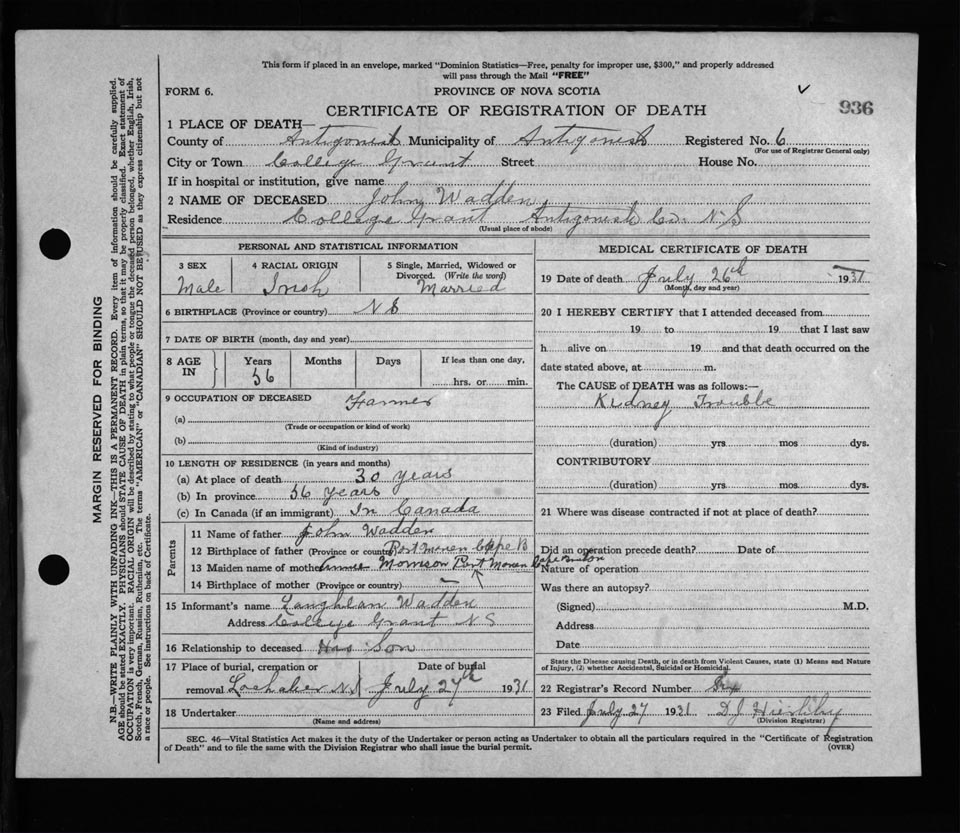 This form if placed in an envelope, marked "Dominion Statistics—Free, penalty for improper use, $300," and properly addressed
will pass through the Mail "FREE"
FORM 6. PROVINCE OF NOVA SCOTIA
CERTIFICATE OF REGISTRATION OF DEATH 936
1 PLACE OF DEATH—
County of Antigonish Municipality of Antigonish Registered No. 6
(For use of Registrar General only)
City or Town College Grant Street House No.
If in hospital or institution, give name
2 NAME OF DECEASED John Wadden
Residence College Grant Antigonish Co. N.S
(Usual place of abode)
PERSONAL AND STATISTICAL INFORMATION
3 SEX 4 RACIAL ORIGIN 5 Single, Married, Widowed or
Divorced. (Write the word)
Male Irish Married
6 BIRTHPLACE (Province or country) N S
7 DATE OF BIRTH (month, day and year)
8 AGE IN Years Months Days If less than one day,
56 hrs. or min.
9 OCCUPATION OF DECEASED Farmer
(a)
(Trade or occupation or kind of work)
(b)
(Kind of industry)
10 LENGTH OF RESIDENCE (in years and months)
(a) At place of death 30 years
(b) In province 56 years
(c) In Canada (if an immigrant) In Canada
Parents
11 Name of father John Wadden
12 Birthplace of father (Province or country) Port Moren Cape B
13 Maiden name of mother Annie Morrison Port Moren Cape Breton
14 Birthplace of mother (Province or country)
15 Informant's name Laughlan Wadden
Address College Grant N S
16 Relationship to deceased Son
17 Place of burial, cremation or Date of burial
removal Lochaber N.S July 27th 1931
18 Undertaker
(Name and address)
MEDICAL CERTIFICATE OF DEATH
19 Date of death July 26th 1931
(Month, day and year)
20 I HEREBY CERTIFY that I attended deceased from
19 to 19 that I last saw
h alive on 19 and that death occurred on the
date stated above, at m.
The CAUSE of DEATH was as follows:—
Kidney Trouble
(duration) yrs mos dys.
CONTRIBUTORY
(duration) yrs mos dys.
21 Where was disease contracted if not at place of death?
Did an operation precede death? Date of
Nature of operation
Was there an autopsy?
(Signed) M.D.
Address
Date
State the Disease causing Death, or in death from Violent Causes, state (1) Means and Nature
of Injury, (2) whether Accidental, Suicidal or Homicidal.
22 Registrar's Record Number Six
23 Filed July 27 1931 D J
(Division Registrar)
SEC. 46—Vital Statistics Act makes it the duty of the Undertaker or person acting as Undertaker to obtain all the particulars required in the "Certificate of Registration
of Death" and to file the same with the Division Registrar who shall issue the burial permit. (OVER)
MARGIN RESERVED FOR BINDING
N.B.—WRITE PLAINLY WITH UNFADING INK—THIS IS A PERMANENT RECORD. Every item of information should be carefully supplied.
AGE should be stated EXACTLY. PHYSICIANS should STATE CAUSE OF DEATH in plain terms, so that it may be properly classified. Exact statement of
OCCUPATION is very important. RACIAL ORIGIN will be described by stating to what people or tongue the deceased person belonged, whether English, Irish,
Scotch, French, German, Russian, Ruthenian, etc. The terms "AMERICAN" or "CANADIAN" SHOULD NOT BE USED as they express citizenship but not
a race or people. See instructions on back of Certificate.